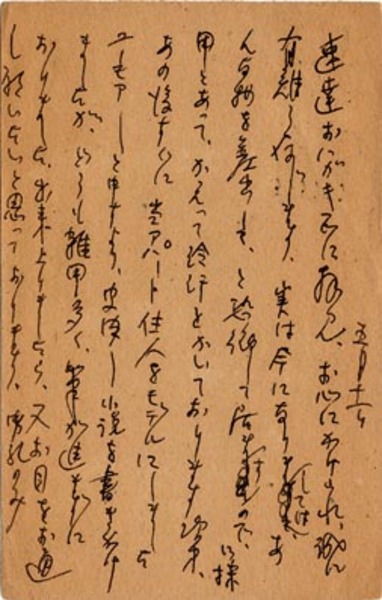 五月十一日
速達おハガキ正に拝見、お心にかけられ、誠に
有難う存じます。実は今になりましては あ
んな物を差出して、と恐縮して居りますので、御採
用とあって、かえって冷汗をかいております次第、
あの後すぐに 当アパート住人をモデルにしました
ユーモアーと申すよう、史陵し小説を書きかけ
ましたが、どうも雑用多く、筆が進まずに
おりますが、出来上りましたら、又お目をお通
し願いたいと思っております。御礼のみ